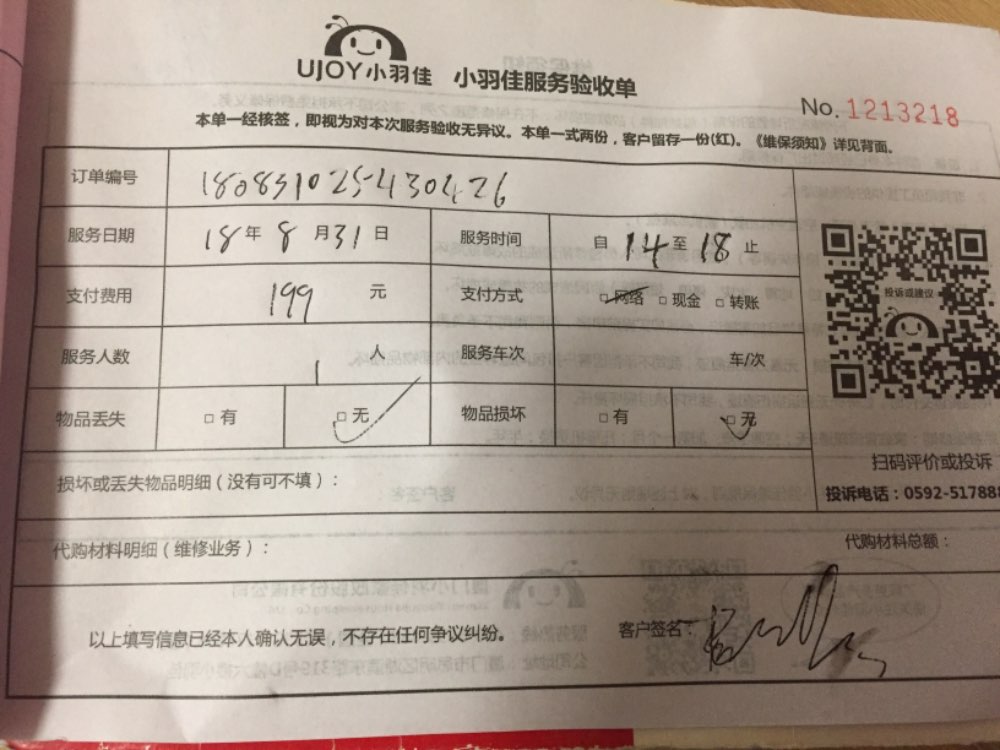 UJOY小羽佳 小羽佳服务验收单
No. 1213218
本单一经核签，即视为对本次服务验收无异议。本单一式两份，客户留存一份(红)。《维保须知》详见背面。
订单编号
服务日期 18 年 8 月 31 日 服务时间 自 14 至 18 止
投诉或建议
支付费用 199 元 支付方式 □网络 □现金 □转账
服务人数 1 人 服务车次 车/次
物品丢失 □有 □无 物品损坏 □有 □无
扫码评价或投诉
损坏或丢失物品明细（没有可不填）：
投诉电话：0592-517888
代购材料明细（维修业务）：
代购材料总额：
以上填写信息已经本人确认无误，不存在任何争议纠纷。 客户签名：